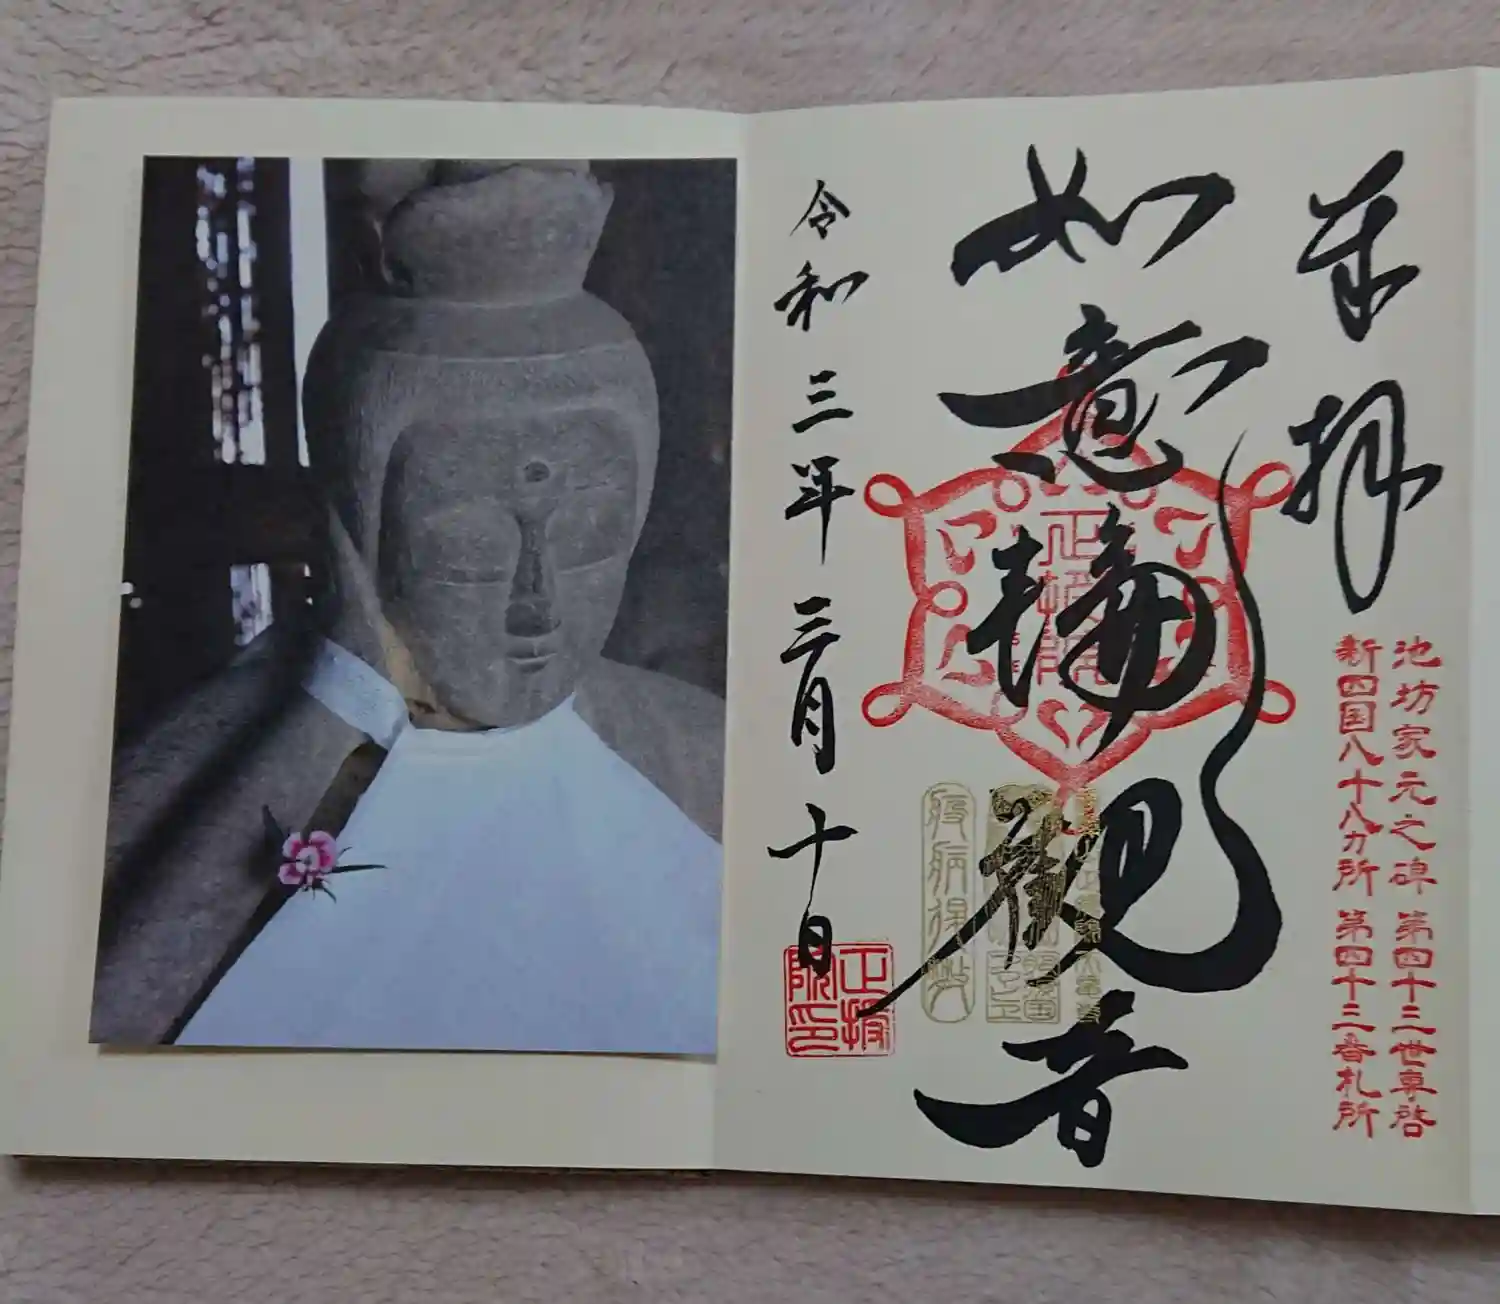 奉拝
池坊家元之碑 第四十三世専啓
新四国八十八カ所 第四十三番札所
如意輪観音
令和三年三月十日
正授院印